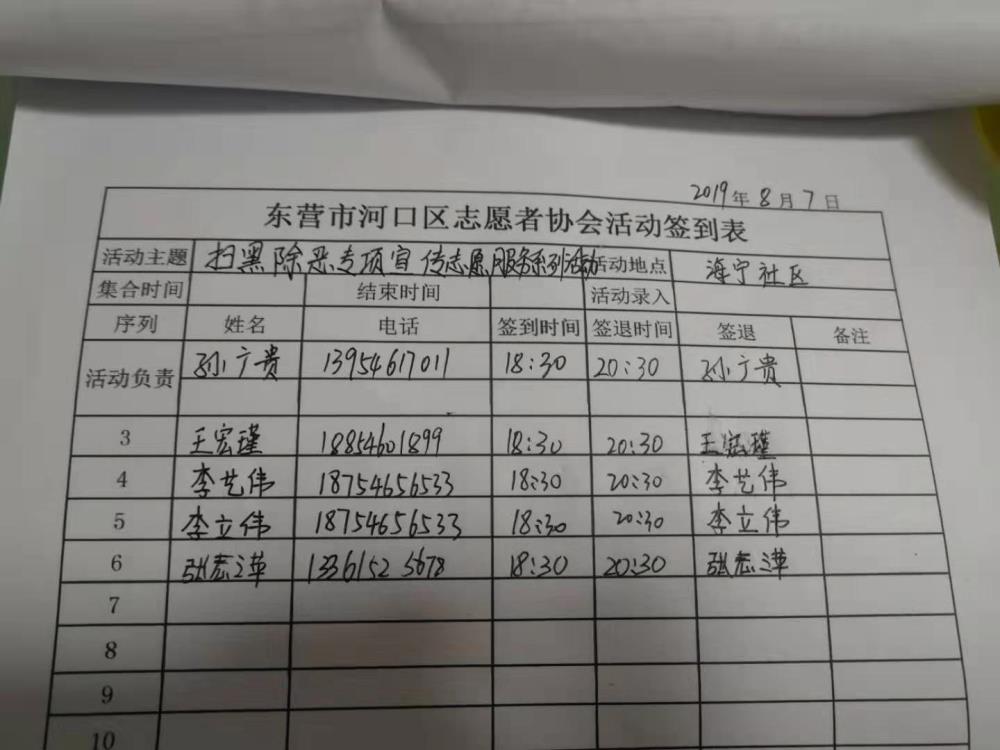 2019年8月7日
东营市河口区志愿者协会活动签到表
活动主题 扫黑除恶专项宣传志愿服务系列活动 活动地点 海宁社区
集合时间 结束时间 活动录入
序列 姓名 电话 签到时间 签退时间 签退 备注
活动负责 孙广贵 13954617011 18:30 20:30 孙广贵
3 王宏瑾 18854601899 18:30 20:30 王宏瑾
4 李艺伟 18754656533 18:30 20:30 李艺伟
5 李立伟 18754656533 18:30 20:30 李立伟
6 张志萍 13361525678 18:30 20:30 张志萍
7
8
9
10